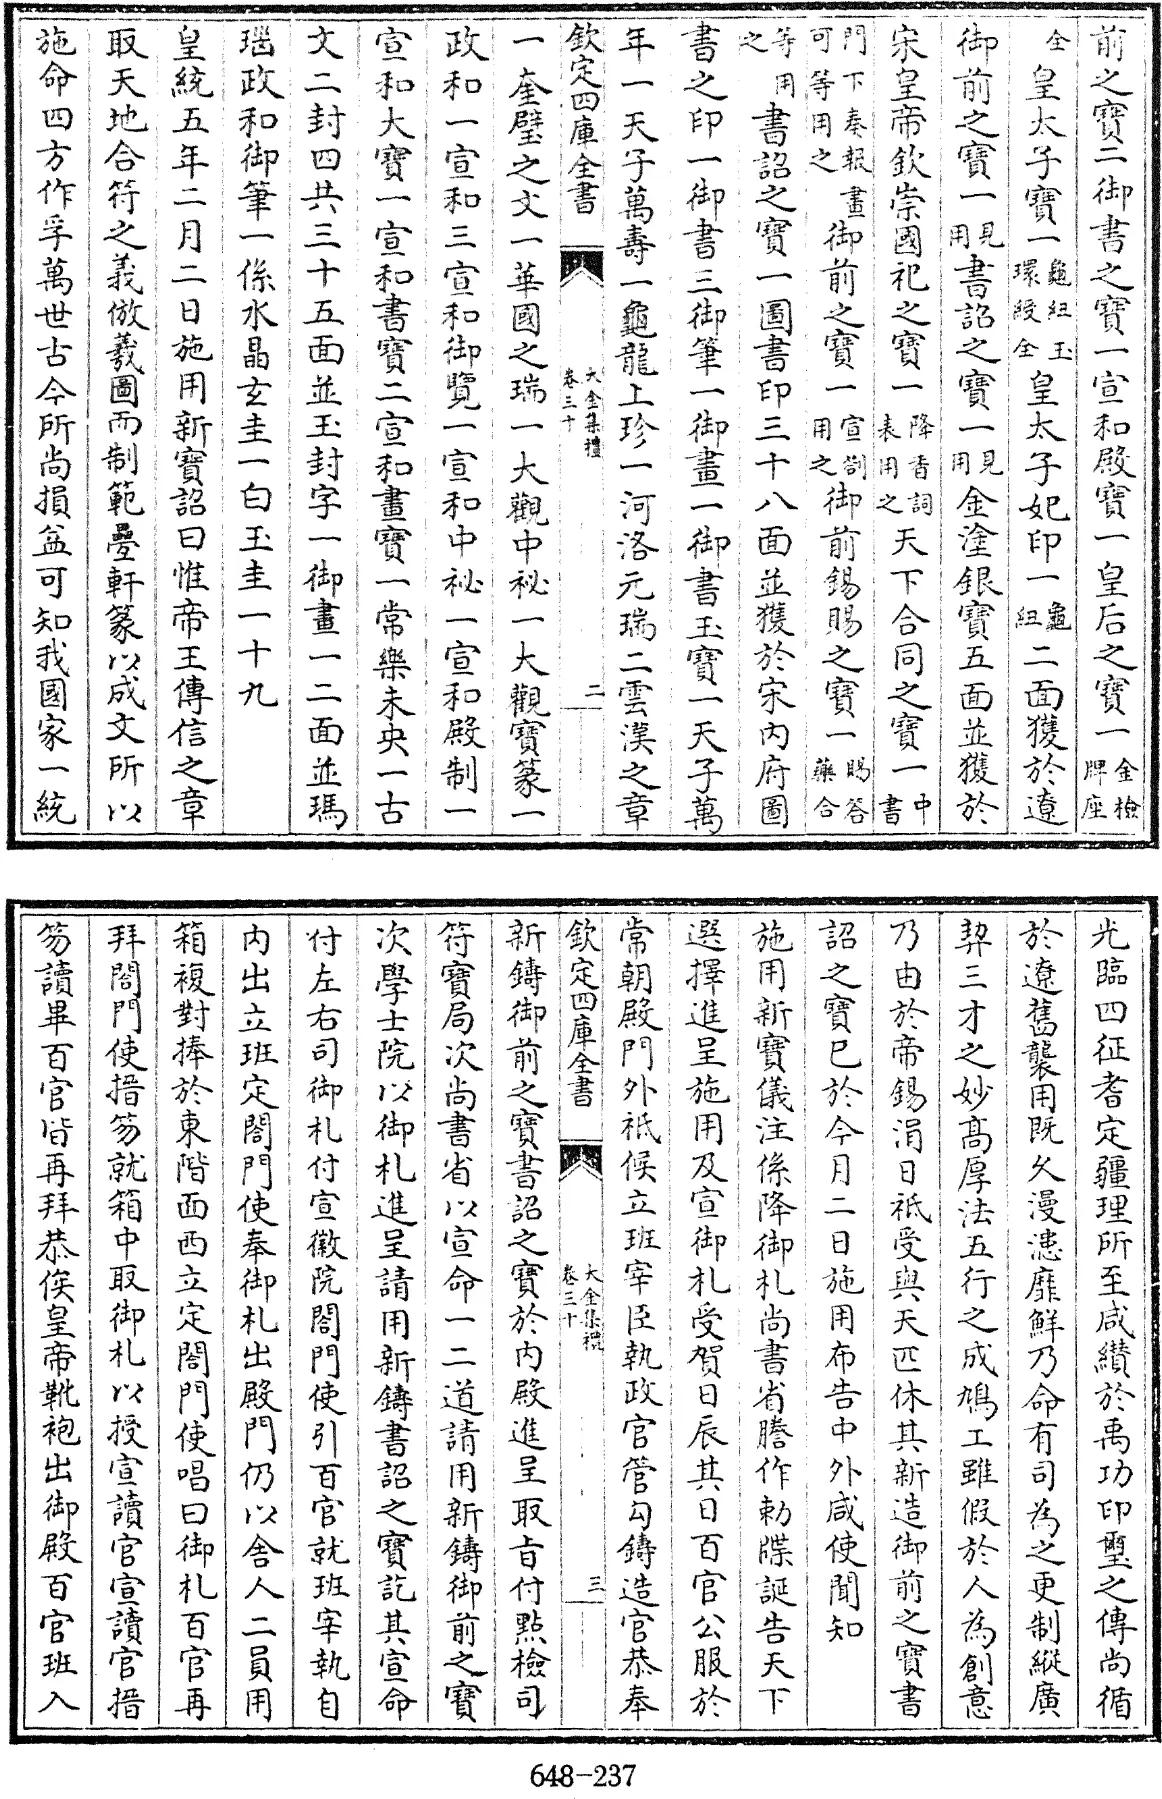 前之寶二御書之寶一宣和殿寶一皇后之寶一金檢牌座
全皇太子寶一龜紐玉環綬全皇太子妃印一龜紐二面獲於遼
御前之寶一見用書詔之寶一見用金塗銀寶五面並獲於
宋皇帝欽崇國祀之寶一降香詞表用之天下合同之寶一中書
門下奏報畫可等用之御前之寶一宣劄用之御前錫賜之寶一賜答藥合
等用之書詔之寶一圖書印三十八面並獲於宋內府圖
書之印一御書三御筆一御畫一御書玉寶一天子萬
年一天子萬壽一龜龍上珍一河洛元瑞二雲漢之章
欽定四庫全書
大金集禮
卷三十
二
一奎璧之文一華國之瑞一大觀中祕一大觀寶篆一
政和一宣和三宣和御覽一宣和中祕一宣和殿制一
宣和大寶一宣和書寶二宣和畫寶一常樂未央一古
文二封四共三十五面並玉封字一御畫一二面並瑪
瑙政和御筆一係水晶玄圭一白玉圭一十九
皇統五年二月二日施用新寶詔曰惟帝王傳信之章
取天地合符之義倣羲圖而制範疊軒篆以成文所以
施命四方作孚萬世古今所尚損益可知我國家一統
光臨四征耆定疆理所至咸纘於禹功印璽之傳尚循
於遼舊襲用既久漫漶靡鮮乃命有司為之更制縱廣
契三才之妙髙厚法五行之成鳩工雖假於人為創意
乃由於帝錫涓日祗受與天匹休其新造御前之寶書
詔之寶已於今月二日施用布告中外咸使聞知
施用新寶儀注係降御札尚書省謄作勅牒誕告天下
選擇進呈施用及宣御札受賀日辰其日百官公服於
常朝殿門外祗候立班宰臣執政官管勾鑄造官恭奉
欽定四庫全書
大金集禮
卷三十
三
新鑄御前之寶書詔之寶於內殿進呈取旨付點檢司
符寶局次尚書省以宣命一二道請用新鑄御前之寶
次學士院以御札進呈請用新鑄書詔之寶訖其宣命
付左右司御札付宣徽院閤門使引百官就班宰執自
內出立班定閤門使奉御札出殿門仍以舍人二員用
箱複對捧於東階面西立定閤門使唱曰御札百官再
拜閤門使搢笏就箱中取御札以授宣讀官宣讀官搢
笏讀畢百官皆再拜恭俟皇帝靴袍出御殿百官班入
648-237